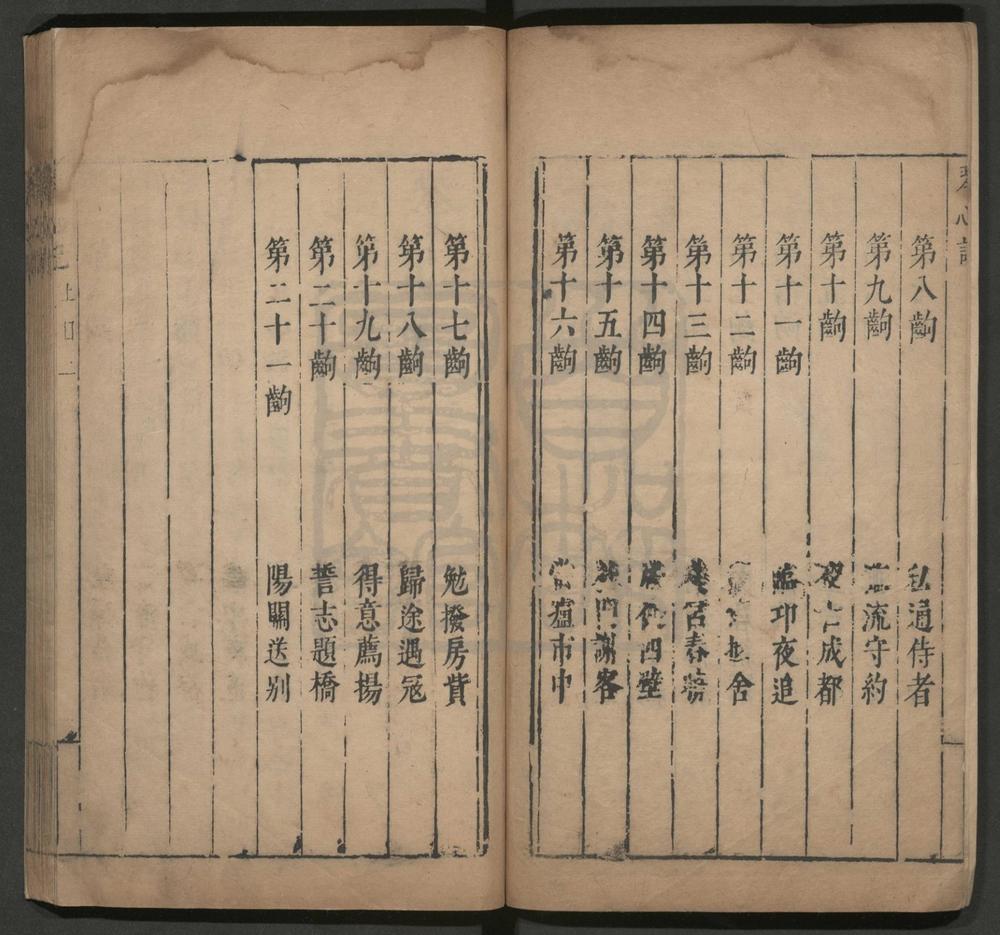 琴心記
第八齣 私通侍者
第九齣 流守約
第十齣 成都
第十一齣 臨邛夜追
第十二齣 舍
第十三齣 宮春
第十四齣 四壁
第十五齣 門謝客
第十六齣 市中
第十七齣 勉撥房貲
第十八齣 歸途遇冦
第十九齣 得意薦揚
第二十齣 誓志題橋
第二十一齣 陽關送别